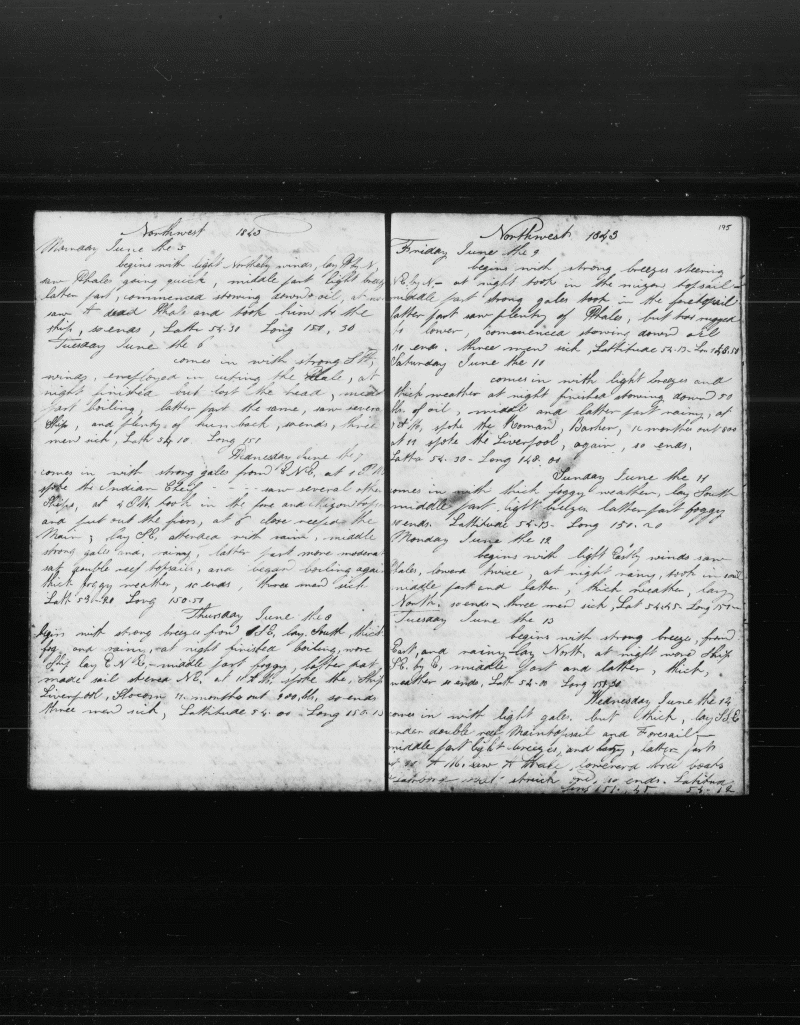 Northwest 1843
Monday June the 5
begins with light Northerly winds, lay
saw Whales going quick, middle part light breezes
latter part, commenced stowing down oil, at
saw A dead Whale and took him to the
ship, so ends, Latt 54.30 Long 150,30
Tuesday June the 6
comes in with strong
winds, employed in cuting the Whale, at
night finished but lost the head,
part boiling, latter part the same, saw several
Ships, and plenty of humback, so ends, three
men sick, Latt 54 10, Long 151
Wednesday June the 7
comes in with strong gales from E.N.E, at
spoke the Indian Cheif - - saw several other
Ships, at took in the fore and Mizon topsail
and put out the fires, at 8 close reefed the
Main, lay attended with rain, middle
strong gales and, rainy, latter part more moderate
reef topsails, and began boiling again
thick foggy weather, so ends, three men sick
Latt Long 150.50
Thursday June the 8
begins with strong breezes from lay South, thick
fog, and rainy, at night finished boiling, wore
Ship lay E N E, middle part foggy, latter part,
made sail steered N.E, at spoke the, Ship
Liverpool, Slocum months out so ends
three men sick, Lattitude 54.00 - Long 150.15
195
Northwest 1843
Friday June the 9
begins with strong breezes steering
N.E. by N. - at night took in the mizon topsail -
middle part strong gales took in the foretopsail
latter part saw plenty of Whales, but too rugged
to lower, commenced stowing down oil
so ends, three men sick, Lattitude
Saturday June the 10
comes in with light breezes and
thick weather at night finished stowing down 50
bls. of oil, middle and latter part rainy, at
spoke the Roman, Barker, months out 800
at spoke the Liverpool, again, so ends.
Latta 54.30 - Long 148.00
Sunday June the 11
comes in with thick foggy weather, lay South
middle part, light breezes, latter part foggy
so ends. Lattitude 54-15- Long 150.20
Monday June the 12
begins with light Eastly winds saw
Whales, lowerd twice, at night rainy, took in sail
middle part and latter, thick weather, lay
North. so ends - three men sick, Lat 54.45. Long
Tuesday June the 13
begins with strong breeze, from
East, and rainy lay North, at night wore Ship
by E, middle part and latter, thick,
weather so ends, Latt 54.10 Long 151.30
Wednesday June the 14
comes in with light gales but thick, lay
under double reef Maintopsail and Foresail -
middle part light breezes, and latter part
at saw A Whale lowered three boats
struck one, so ends. Latitude
Long 151.45 54.12